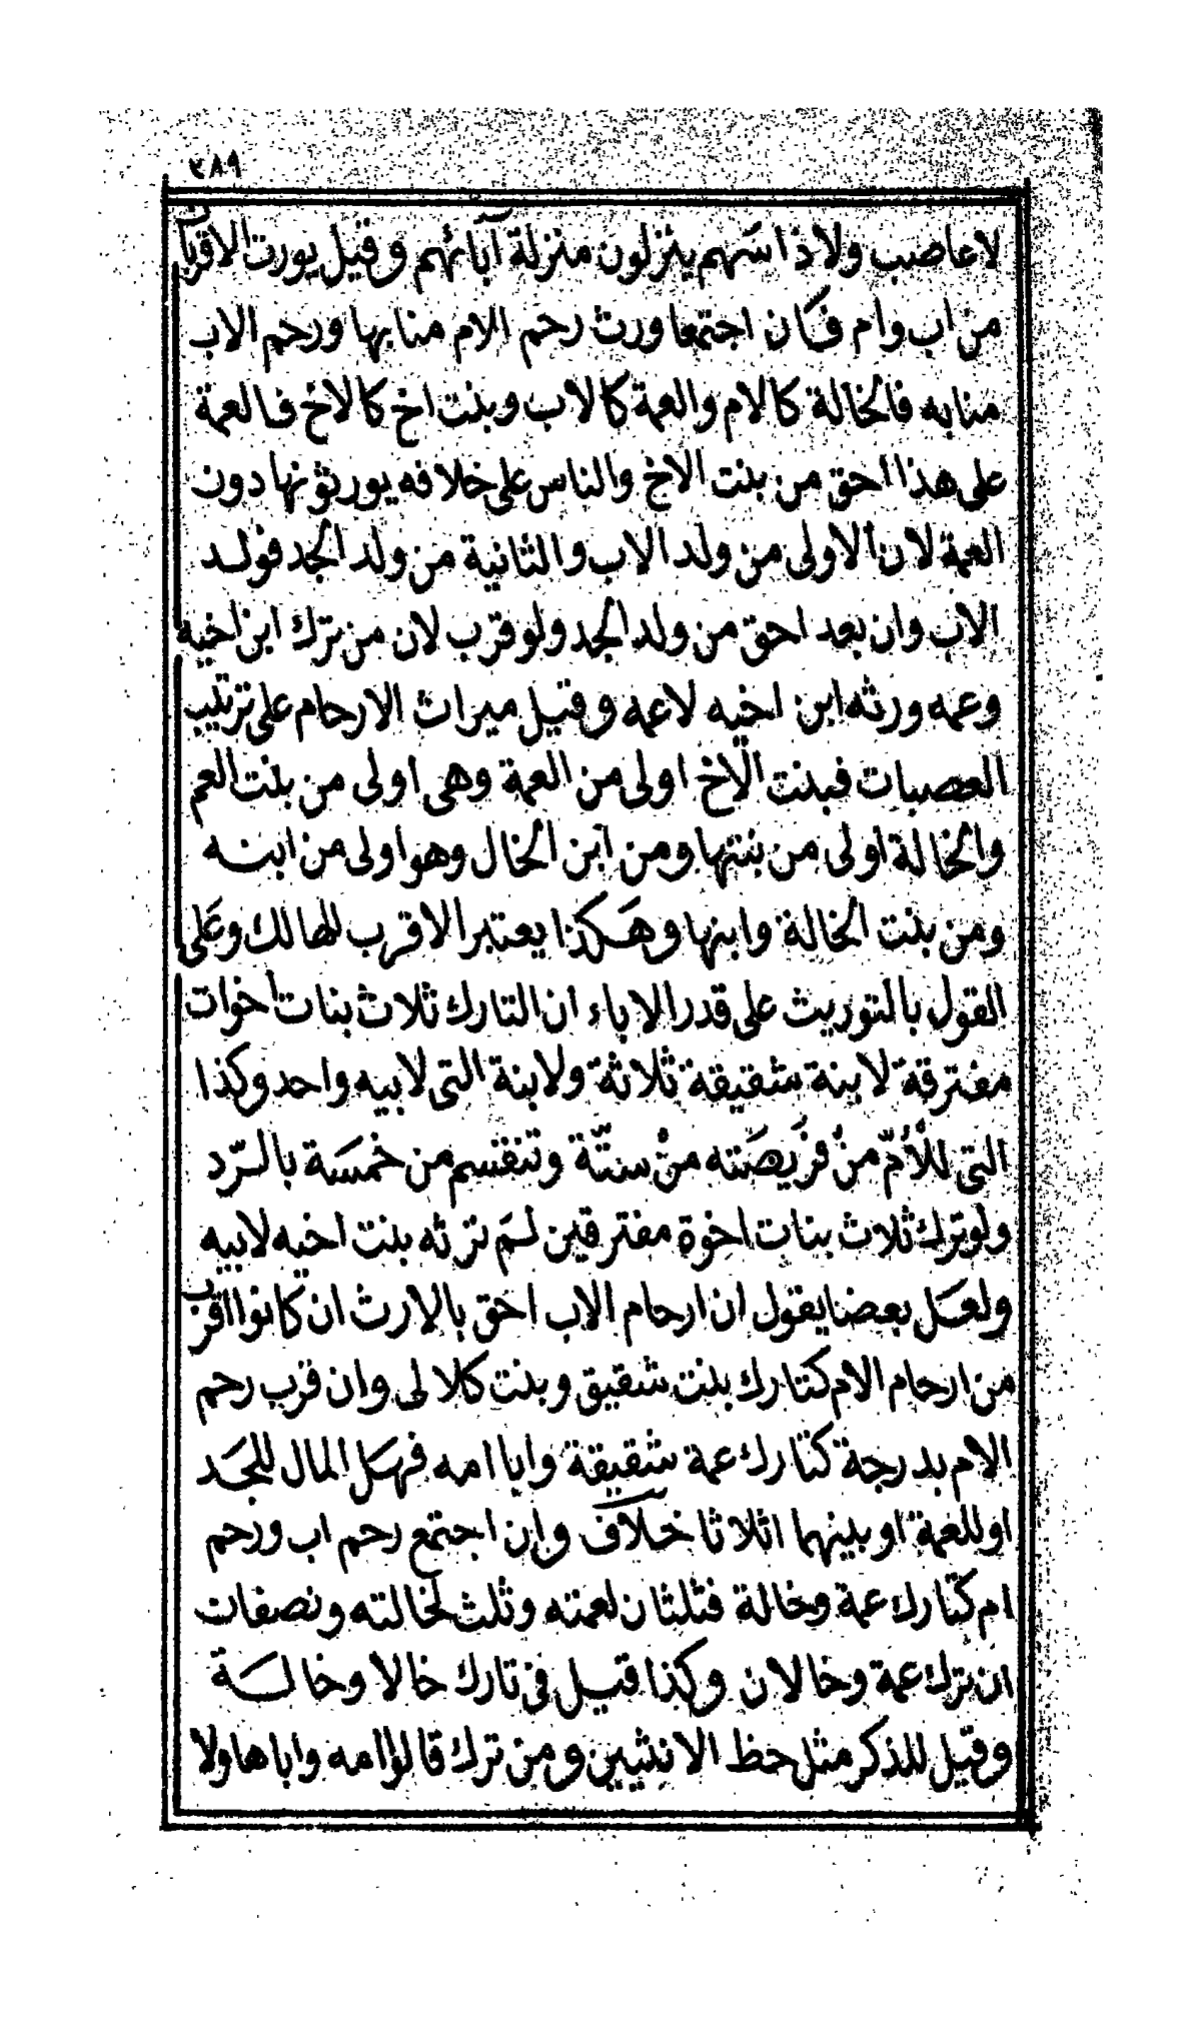 ٣٨٩
لا عاصب ولا ذا سهم ينزلون منزلة آبائهم وقيل يورث الاقربان
من اب وام فكان اجتمعا ورث رحم الام منابها ورحم الاب
منابه فالخالة كالام والعمة كالاب وبنت اخ كالاخ فالعمة
على هذا احق من بنت الاخ والناس على خلافه يورثونها دون
العمة لان الاولى من ولد الاب والثانية من ولد الجد فولد
الاب وان بعد احق من ولد الجد ولو قرب لان من ترك ابن اخيه
وعمه ورثه ابن اخيه لا عمه وقيل ميراث الارحام على ترتيب
العصبات فبنت الاخ اولى من العمة وهى اولى من بنت العم
والخالة اولى من بنتها ومن ابن الخال وهو اولى من ابنه
ومن بنت الخالة وابنها وهكذا يعتبر الاقرب للهالك وعلى
القول بالتوريث على قدر الاباء ان التارك ثلاث بنات اخوات
مفترقة لابنة شقيقة ثلاثة ولابنة التى لابيه واحد وكذا
التى للأمّ منْ فرَيضَته منْ ستّة وتنقسم من خمسَة بالرّد
ولو ترك ثلاث بنات اخوة مفترقين لمَ ترثه بنت اخيه لابيه
ولعَل بعضا يقول ان ارحام الاب احق بالارث ان كانوا اقرب
من ارحام الام كتارك بنت شقيق وبنت كلالى وان قرب رحم
الام بدرجة كتارك عمة شقيقة وابا امه فهَل المال للجَد
او للعمة او بينهما اثلاثا خلاف وان اجتمع رحم اب ورحم
ام كتارك عمة وخالة فثلثان لعمته وثلث لخالته ونصفات
ان ترك عمة وخالان وكذا قيل فى تارك خالا وخالسَة
وقيل للذكر مثل حظ الانثيين ومن ترك قالوا امه واباها ولا